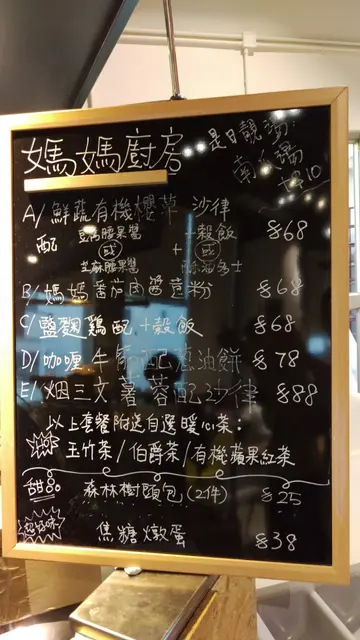 媽媽廚房
是日靚湯:
南瓜湯
+$10
A/ 鮮蔬有機櫻草 沙律 $68
配 豆腐腰果醬 或 芝麻腰果醬 + 十穀飯 或 多士
B/ 媽媽番茄肉醬意粉 $68
C/ 鹽麴鷄配十穀飯 $68
D/ 咖喱牛腩配葱油餅 $78
E/ 烟三文薯蓉配沙律 $88
以上套餐附送自選暖心茶:
玉竹茶/伯爵茶/有機蘋果紅茶
甜品 森林樹頭包(2件) $25
焦糖燉蛋 $38